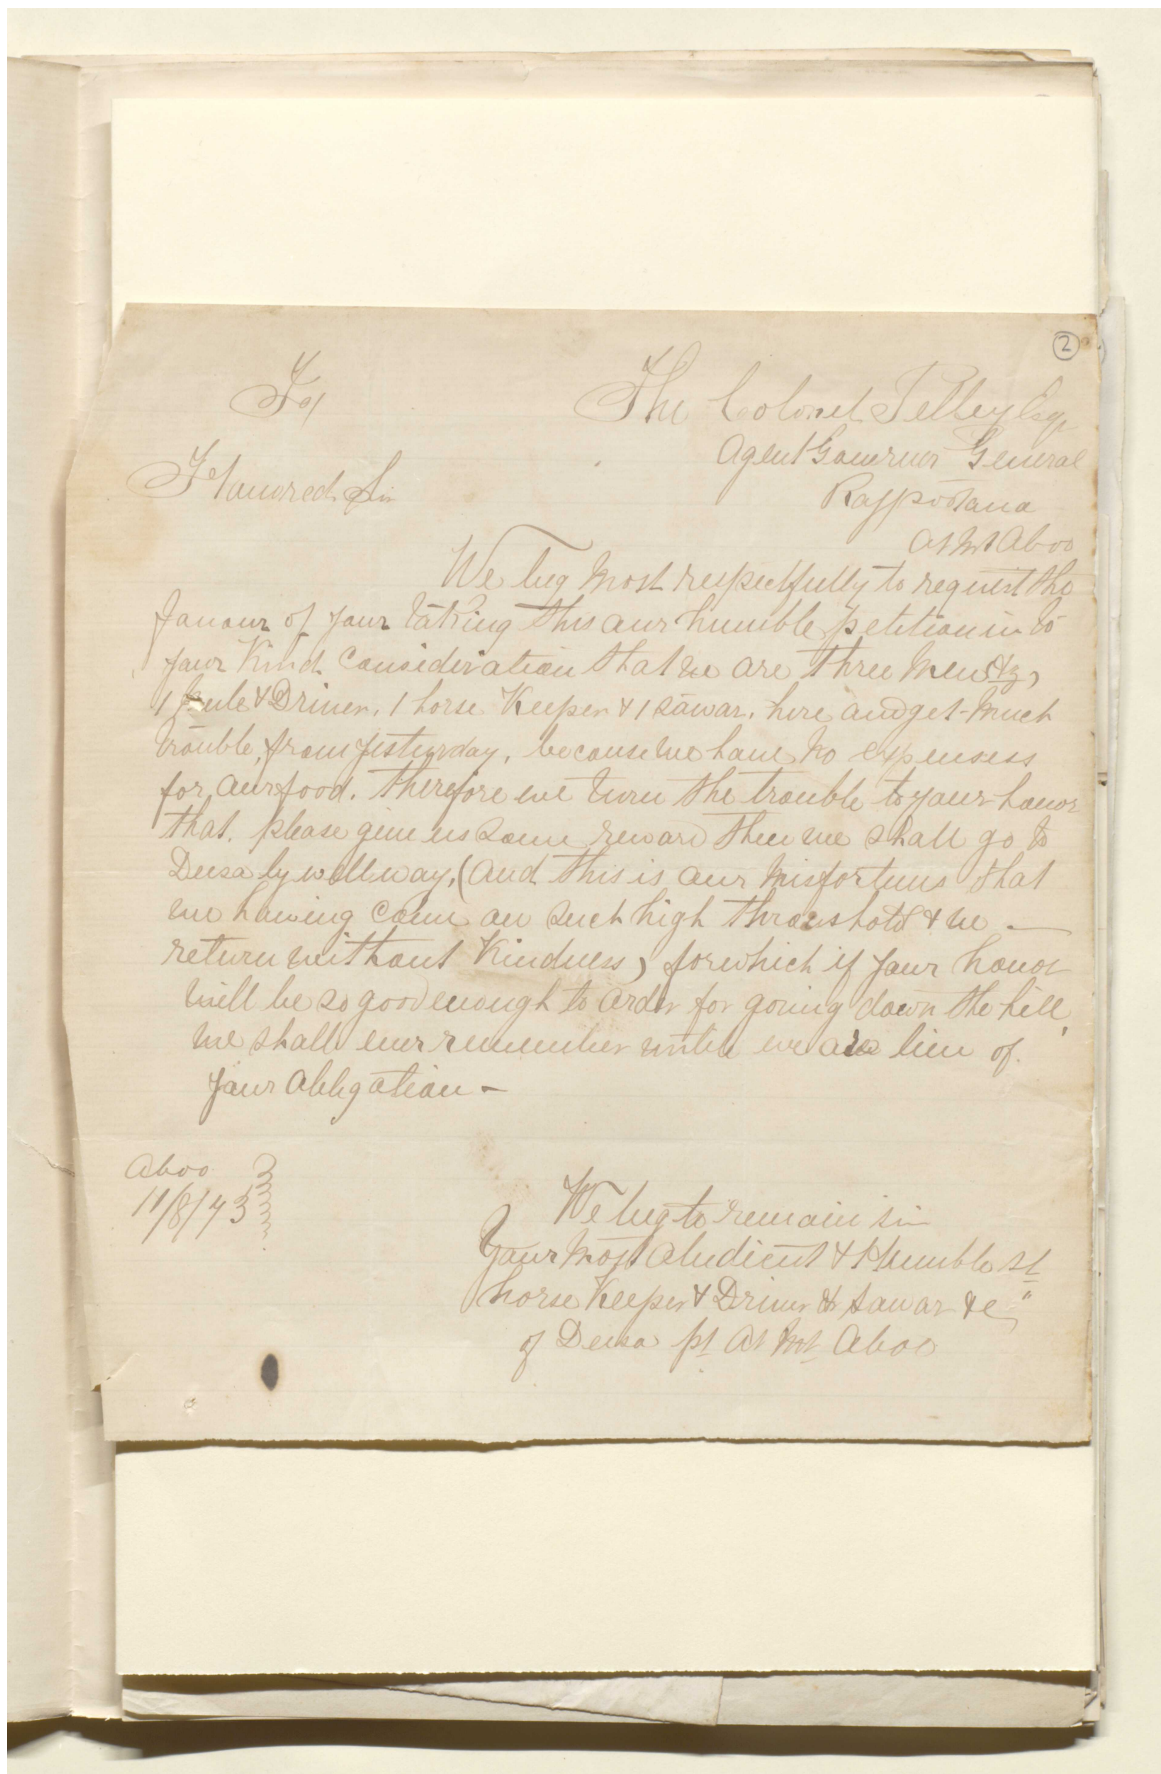 2
To/
The Colonel Pelley Esqr
Agent Governor General
Honoured Sir
Rajpootana
At Mt Aboo
We beg most respectfully to request the
favour of your taking this our humble petition in to
your Kind Consideration that we are three men
1 mule & Driver, 1 horse Keeper & 1 sawar, here and get much
trouble, from yesterday, because we have no expensess
for our food. therefore we turn the trouble to your honor
that. please give us some reward then we shall go to
Deesa by well way, (and this is our misfortune that
we having come on such high throushold & we —
return without Kindness) for which if your honor
will be so good enough to order for going down the hill,
we shall ever remember until we are live of
your obligation —
Aboo
11/8/73
We beg to remain sir
Your most obedient & Humble St
horse Keeper & Driver & sawar &c
of Deesa pt At Mt Aboo